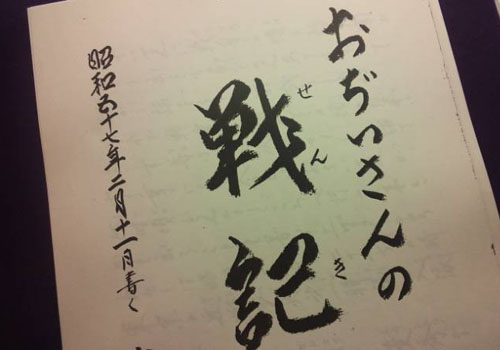 おぢいさんの
戦記
せんき
昭和五十七年二月十一日書く